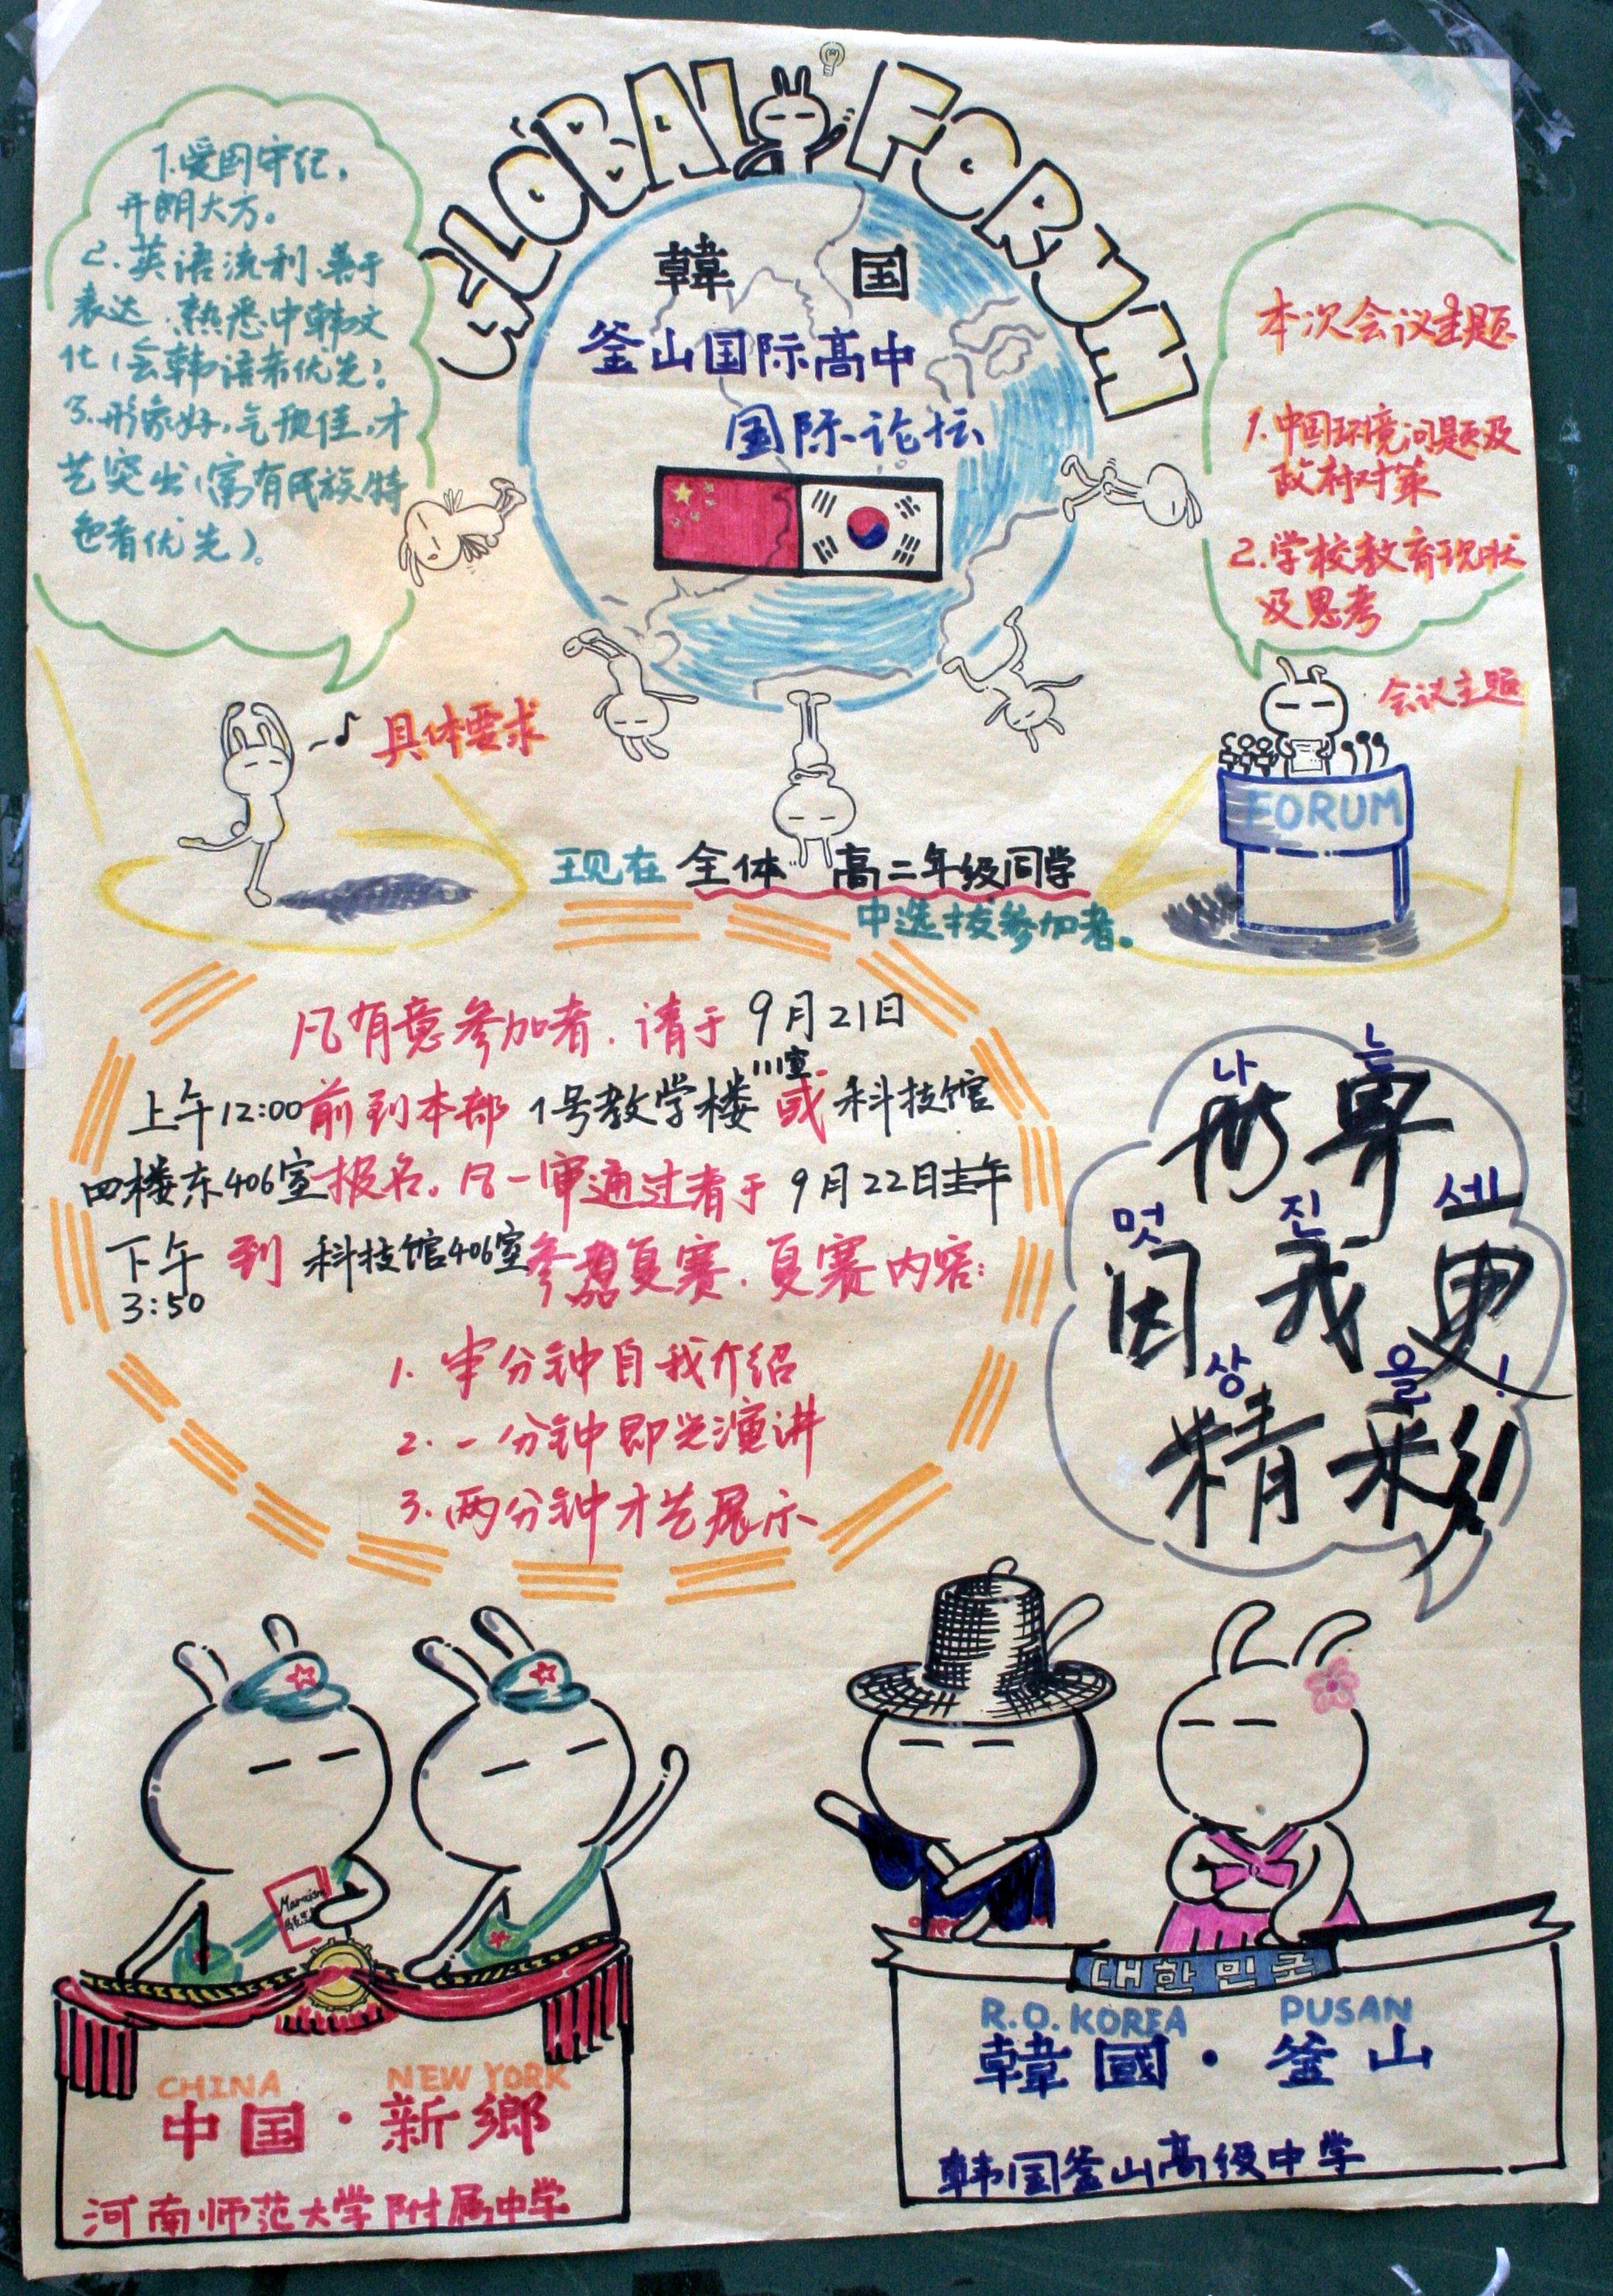 GLOBAL FORUM
韓 国
釜山国际高中
国际论坛
1.爱国守纪,
开朗大方。
2.英语流利、善于
表达、熟悉中韩文
化(会韩语者优先)。
3.形象好,气质佳,才
艺突出(富有民族特
色者优先)。
具体要求
本次会议主题
1.中国环境问题及
政府对策
2.学校教育现状
及思考
会议主题
FORUM
现在 全体 高二年级同学
中选拔参加者。
凡有意参加者,请于 9月21日
上午12:00前到本部 1号教学楼111室或科技馆
四楼东406室报名。凡一审通过者于 9月22日
下午3:50 到 科技馆406室参加复赛,复赛内容:
1. 半分钟自我介绍
2. 一分钟即兴演讲
3. 两分钟才艺展示
나 는
世界
멋 진 세
因我更
상 을 !
精彩!
Marxism
대한민국
R.O.KOREA PUSAN
韓國·釜山
韩国釜山高级中学
CHINA NEW YORK
中国·新鄉
河南师范大学附属中学